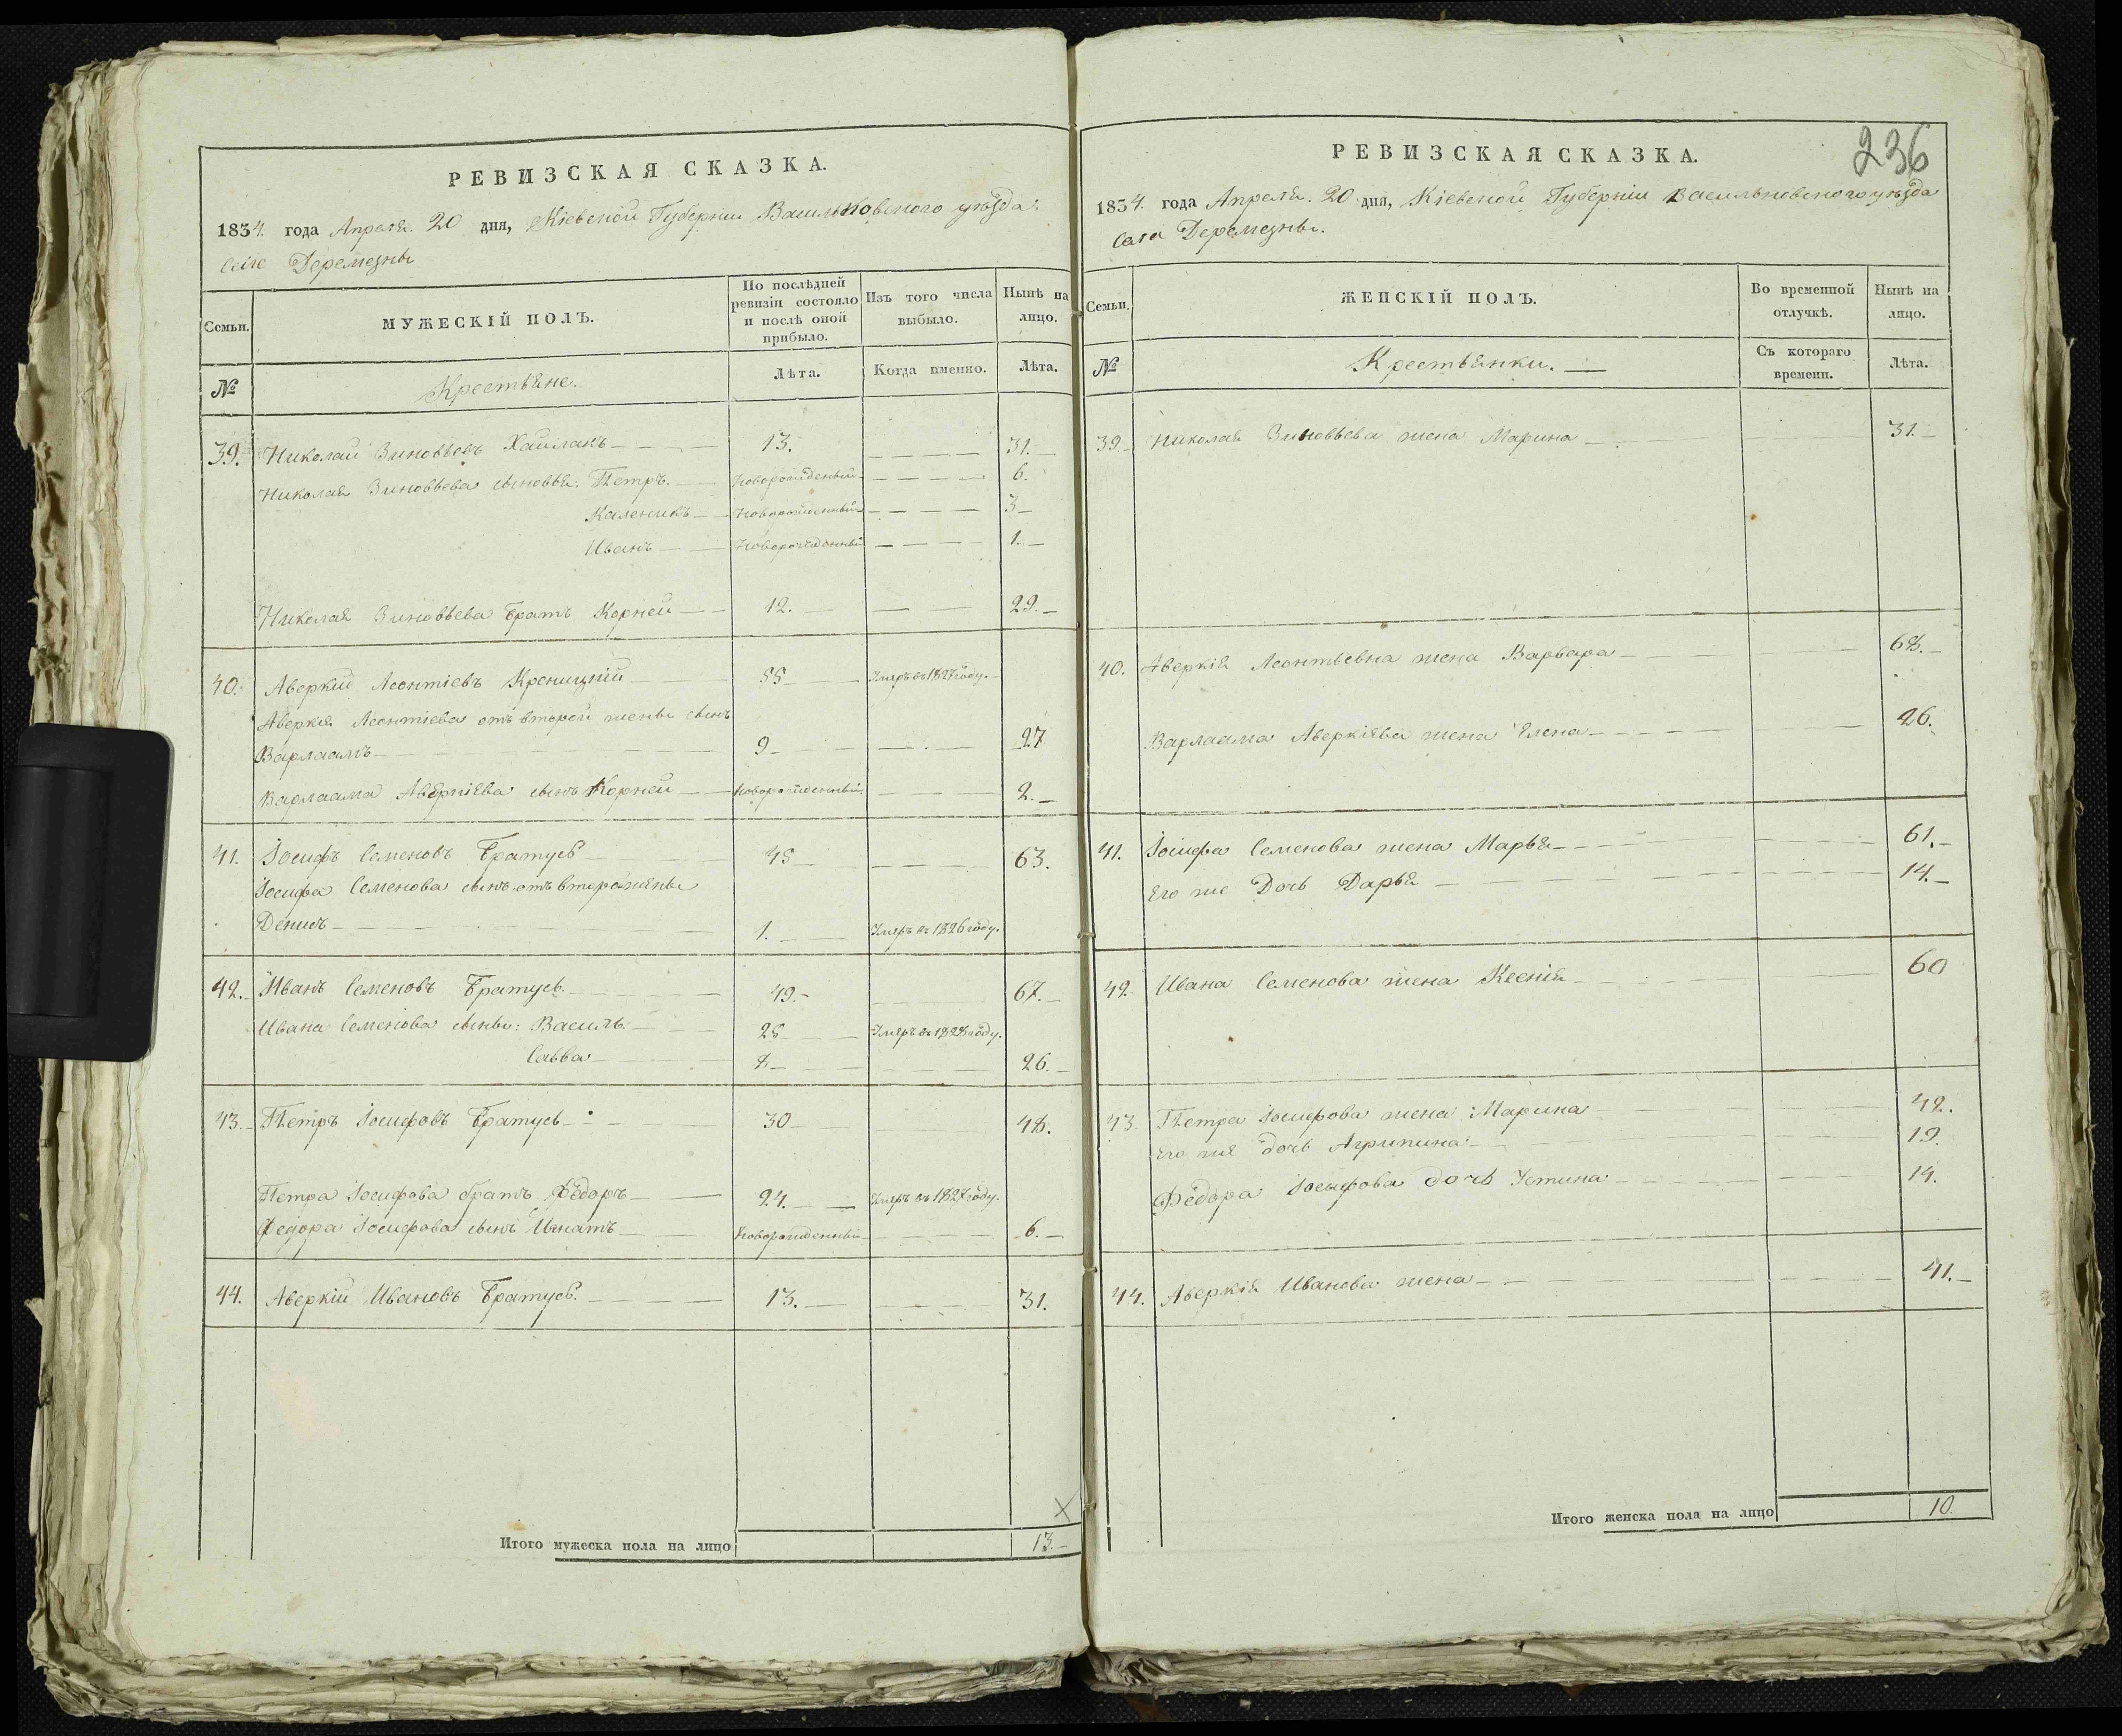 РЕВИЗСКАЯ СКАЗКА.
1834. года Апреля. 20 дня, Кіевской Губерніи Васильковского уѣзда.
Села Деремезны
Семьи.
МУЖЕСКІЙ ПОЛЪ.
По послѣдней ревизіи состояло и послѣ оной прибыло.
Изъ того числа выбыло.
Нынѣ на лицо.
№
Крестьяне.
Лѣта.
Когда именно.
Лѣта.
39. Николай Зиновьевъ Хайлакъ 13. 31.
Николая Зиновьева сыновья: Петръ. новорожденый 6.
Каленикъ Новорожденный 3
Иванъ Новорожденный 1.
Николая Зиновьева братъ Корней 12. 29.
40. Аверкий Леонтіевъ Креницкій 55 Умеръ въ 1827 году.
Аверкія Леонтіева отъ второй жены сынъ
Варлаамъ 9 27
Варлаама Аверкіева сынъ Корней новорожденный 2.
41. Іосифъ Семеновъ Братусь 45 63.
Іосифа Семенова сынъ отъ второй жены
Денисъ 1. Умеръ въ 1826 году.
42. Иванъ Семеновъ Братусь. 49. 67.
Ивана Семенова сыны: Василь. 25 Умеръ въ 1828 году.
Савва 8 26.
43. Петръ Іосифовъ Братусь 30 48.
Петра Іосифова братъ Фёдоръ 24. Умеръ въ 1827 году.
Федора Іосифова сынъ Игнатъ Новорожденный 6.
44. Аверкій Ивановъ Братусь. 13. 31.
Итого мужеска пола на лицо 13.
236
РЕВИЗСКАЯ СКАЗКА.
1834. года Апреля. 20 дня, Кіевской Губерніи Васильковского уѣзда
Села Деремезны.
Семьи.
ЖЕНСКІЙ ПОЛЪ.
Во временной отлучкѣ.
Нынѣ на лицо.
№
Крестьянки.
Съ котораго времени.
Лѣта.
39. Николая Зиновьева жена Марина 31.
40. Аверкія Леонтьевна жена Варвара 68.
Варлаама Аверкіева жена Елена 26.
41. Іосифа Семенова жена Марья 61.
Его же Дочь Дарья 14.
42. Ивана Семенова жена Ксенія 60
43. Петра Іосифова жена: Марина 42.
Его же дочь Агрипина 19.
Федора Іосифова дочь Устина 14.
44. Аверкія Иванова жена 41.
Итого женска пола на лицо 10.